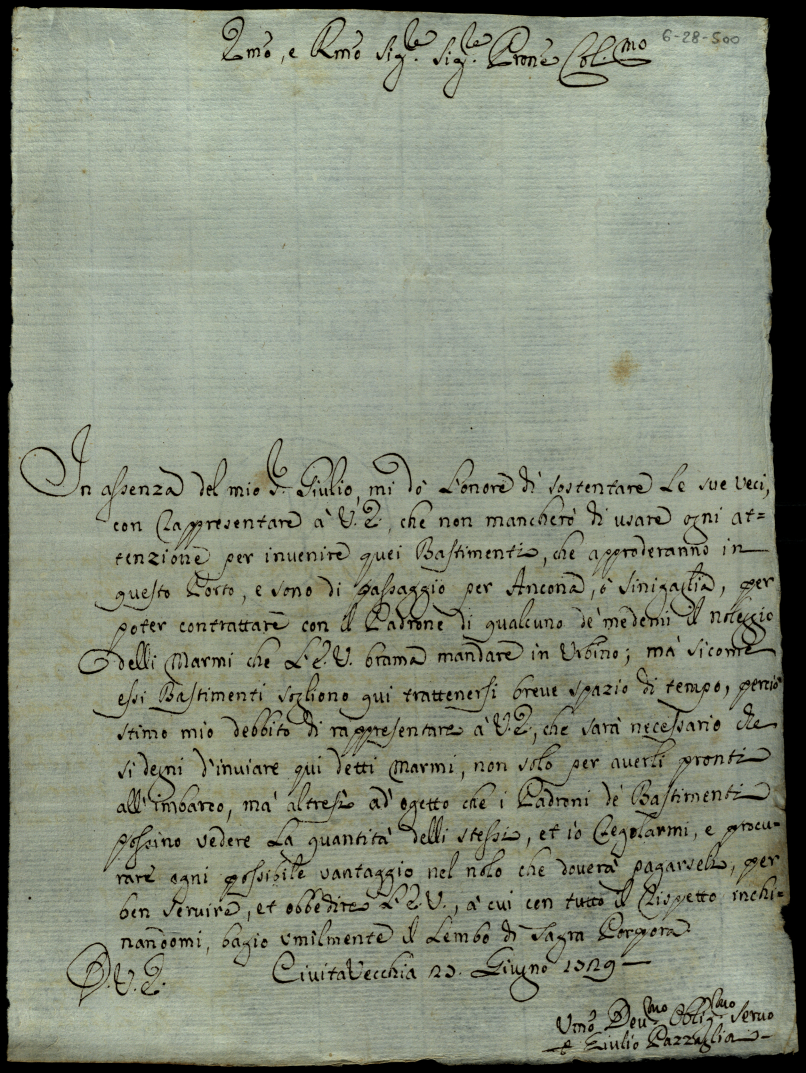 6-28-500
Emo, e Rmo Sig.re Sig.re Prone Col.mo
In assenza del mio S.r Giulio, mi dò l'onore di sostentare le sue veci,
con rappresentare à V.E., che non mancherò di usare ogni at=
tenzione per invenire quei Bastimenti, che approderanno in
questo Porto, e sono di passaggio per Ancona, ò Sinigaglia, per
poter contrattare con il Padrone di qualcuno de' medemi il noleggio
delli Marmi che L'E.V. brama mandare in Urbino; mà sicome
essi Bastimenti sogliono qui trattenersi breve spazio di tempo, perciò
stimo mio debbito di rappresentare à V.E., che sarà necessario che
si degni d'inviare qui detti Marmi, non solo per averli pronti
all'imbarco, mà altresì ad' ogetto che i Padroni de' Bastimenti
possino vedere la quantità delli stessi, et io regolarmi, e procu=
rare ogni possibile vantaggio nel nolo che doverà pagarseli, per
ben servire, et obbedire L'E.V., à cui con tutto il rispetto inchi=
nandomi, bagio umilmente il Lembo di Sagra Porpora
D. V. E. CivitaVecchia 23. Giugno 1729
Umo Deu.mo Oblig.mo Seruo
Giulio Pazzaglia